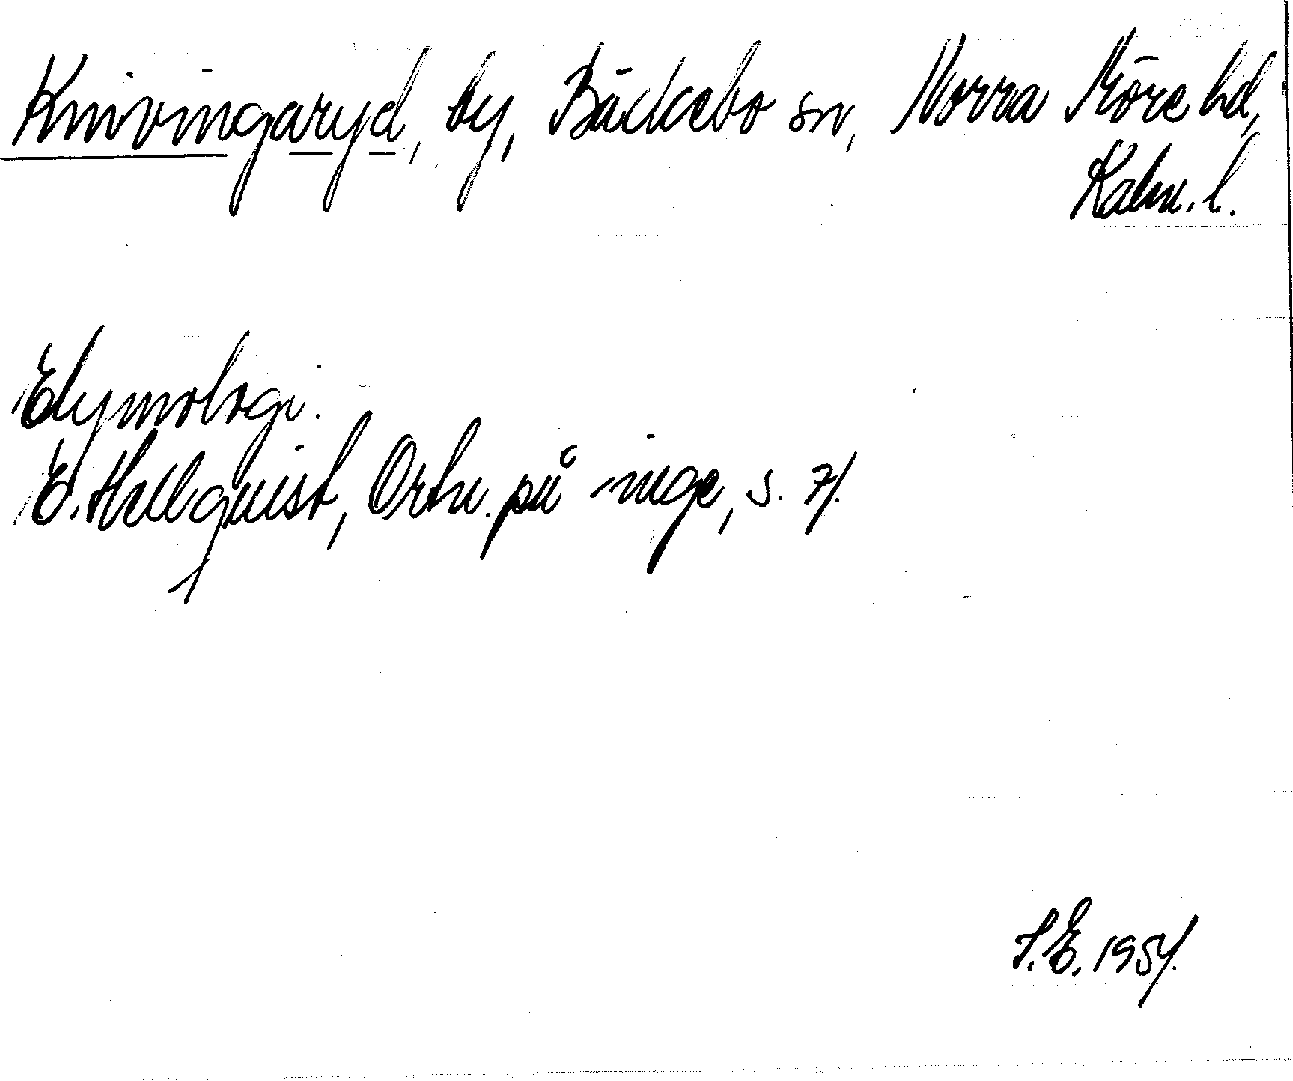 Knivingaryd, by, Bäckebo sn, Norra Möre hd,
Kalm. l.
Etymologi.
E. Hellquist, Ortn. på -inge, s. 71.
S.E. 1954.